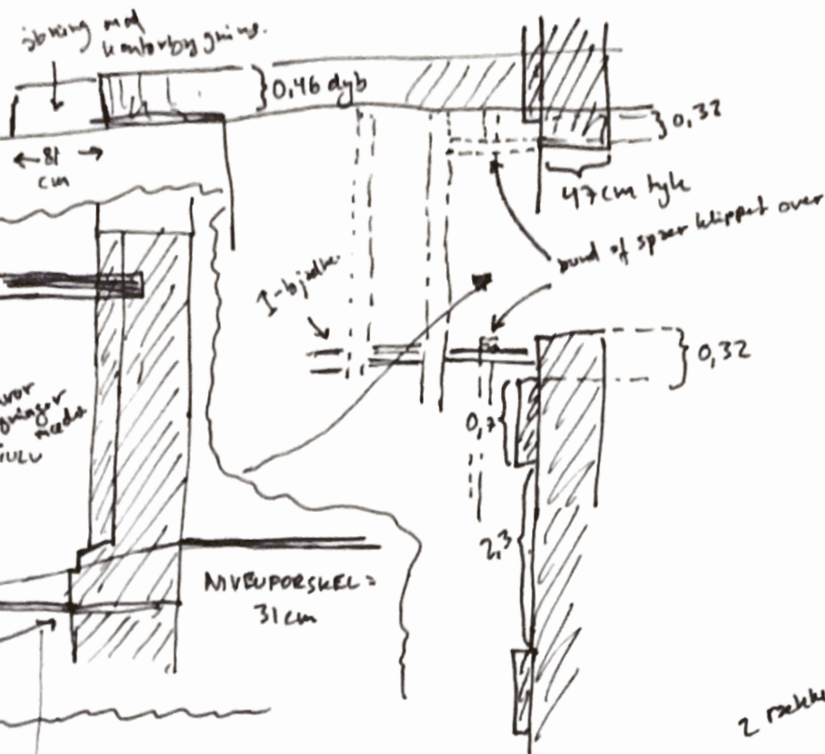 åbning mod
kontorbygning.
0,46 dyb
0,32
81
cm
47 cm tyk
bund af spær klippet over
I-bjælke
0,32
0,7
2,3
NIVEUFORSKEL =
31 cm
2 række